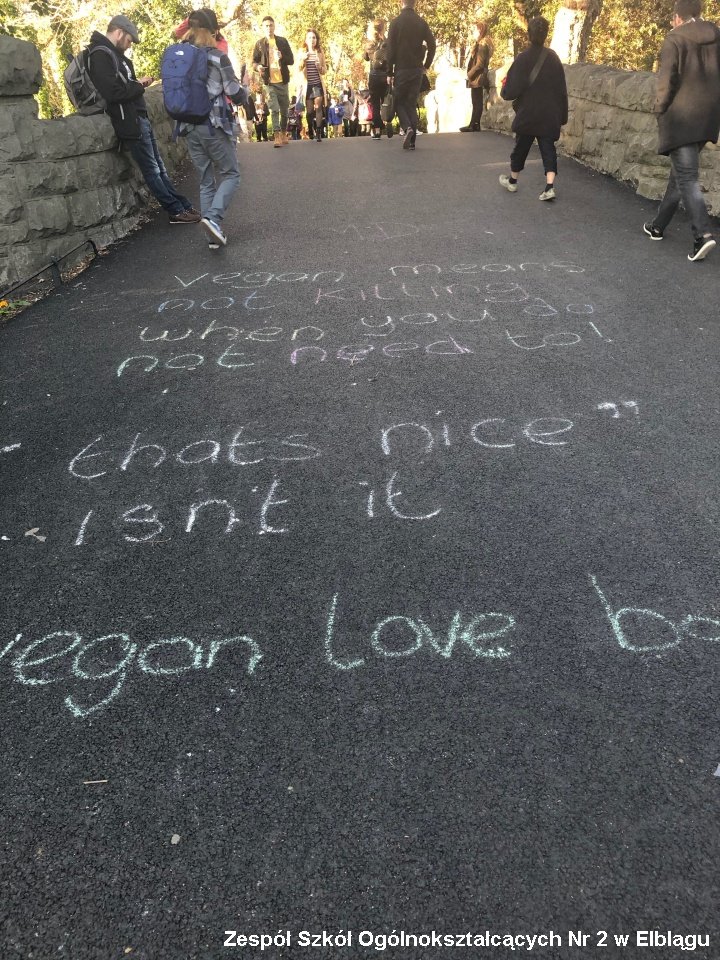 vegan means
not killing
when you do
not need to!
thats nice"
isnt it
vegan love
Zespół Szkół Ogólnokształcących Nr 2 w Elblągu